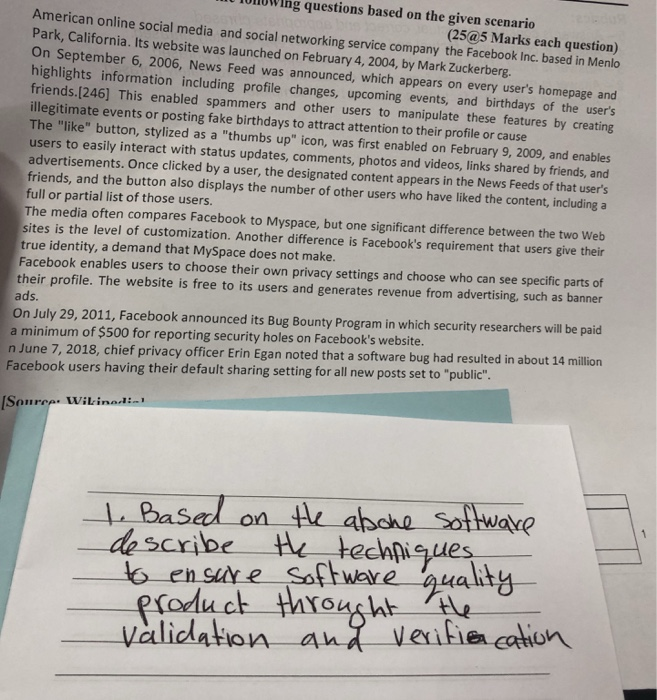 questions based on the given scenario
(25@5 Marks each question)
American online social media and social networking service company the Facebook Inc. based in Menlo
Park, California. Its website was launched on February 4, 2004, by Mark Zuckerberg.
On September 6, 2006, News Feed was announced, which appears on every user's homepage and
highlights information including profile changes, upcoming events, and birthdays of the user's
friends.[246] This enabled spammers and other users to manipulate these features by creating
illegitimate events or posting fake birthdays to attract attention to their profile or cause
The "like" button, stylized as a "thumbs up" icon, was first enabled on February 9, 2009, and enables
users to easily interact with status updates, comments, photos and videos, links shared by friends, and
advertisements. Once clicked by a user, the designated content appears in the News Feeds of that user's
friends, and the button also displays the number of other users who have liked the content, including a
full or partial list of those users.
The media often compares Facebook to Myspace, but one significant difference between the two Web
sites is the level of customization. Another difference is Facebook's requirement that users give their
true identity, a demand that MySpace does not make.
Facebook enables users to choose their own privacy settings and choose who can see specific parts of
their profile. The website is free to its users and generates revenue from advertising, such as banner
ads.
On July 29, 2011, Facebook announced its Bug Bounty Program in which security researchers will be paid
a minimum of $500 for reporting security holes on Facebook's website.
n June 7, 2018, chief privacy officer Erin Egan noted that a software bug had resulted in about 14 million
Facebook users having their default sharing setting for all new posts set to "public".
[Source: Wikipedia]
1. Based on the abohe software
describe the techniques
to ensure software quality
product throught the
validation and verification